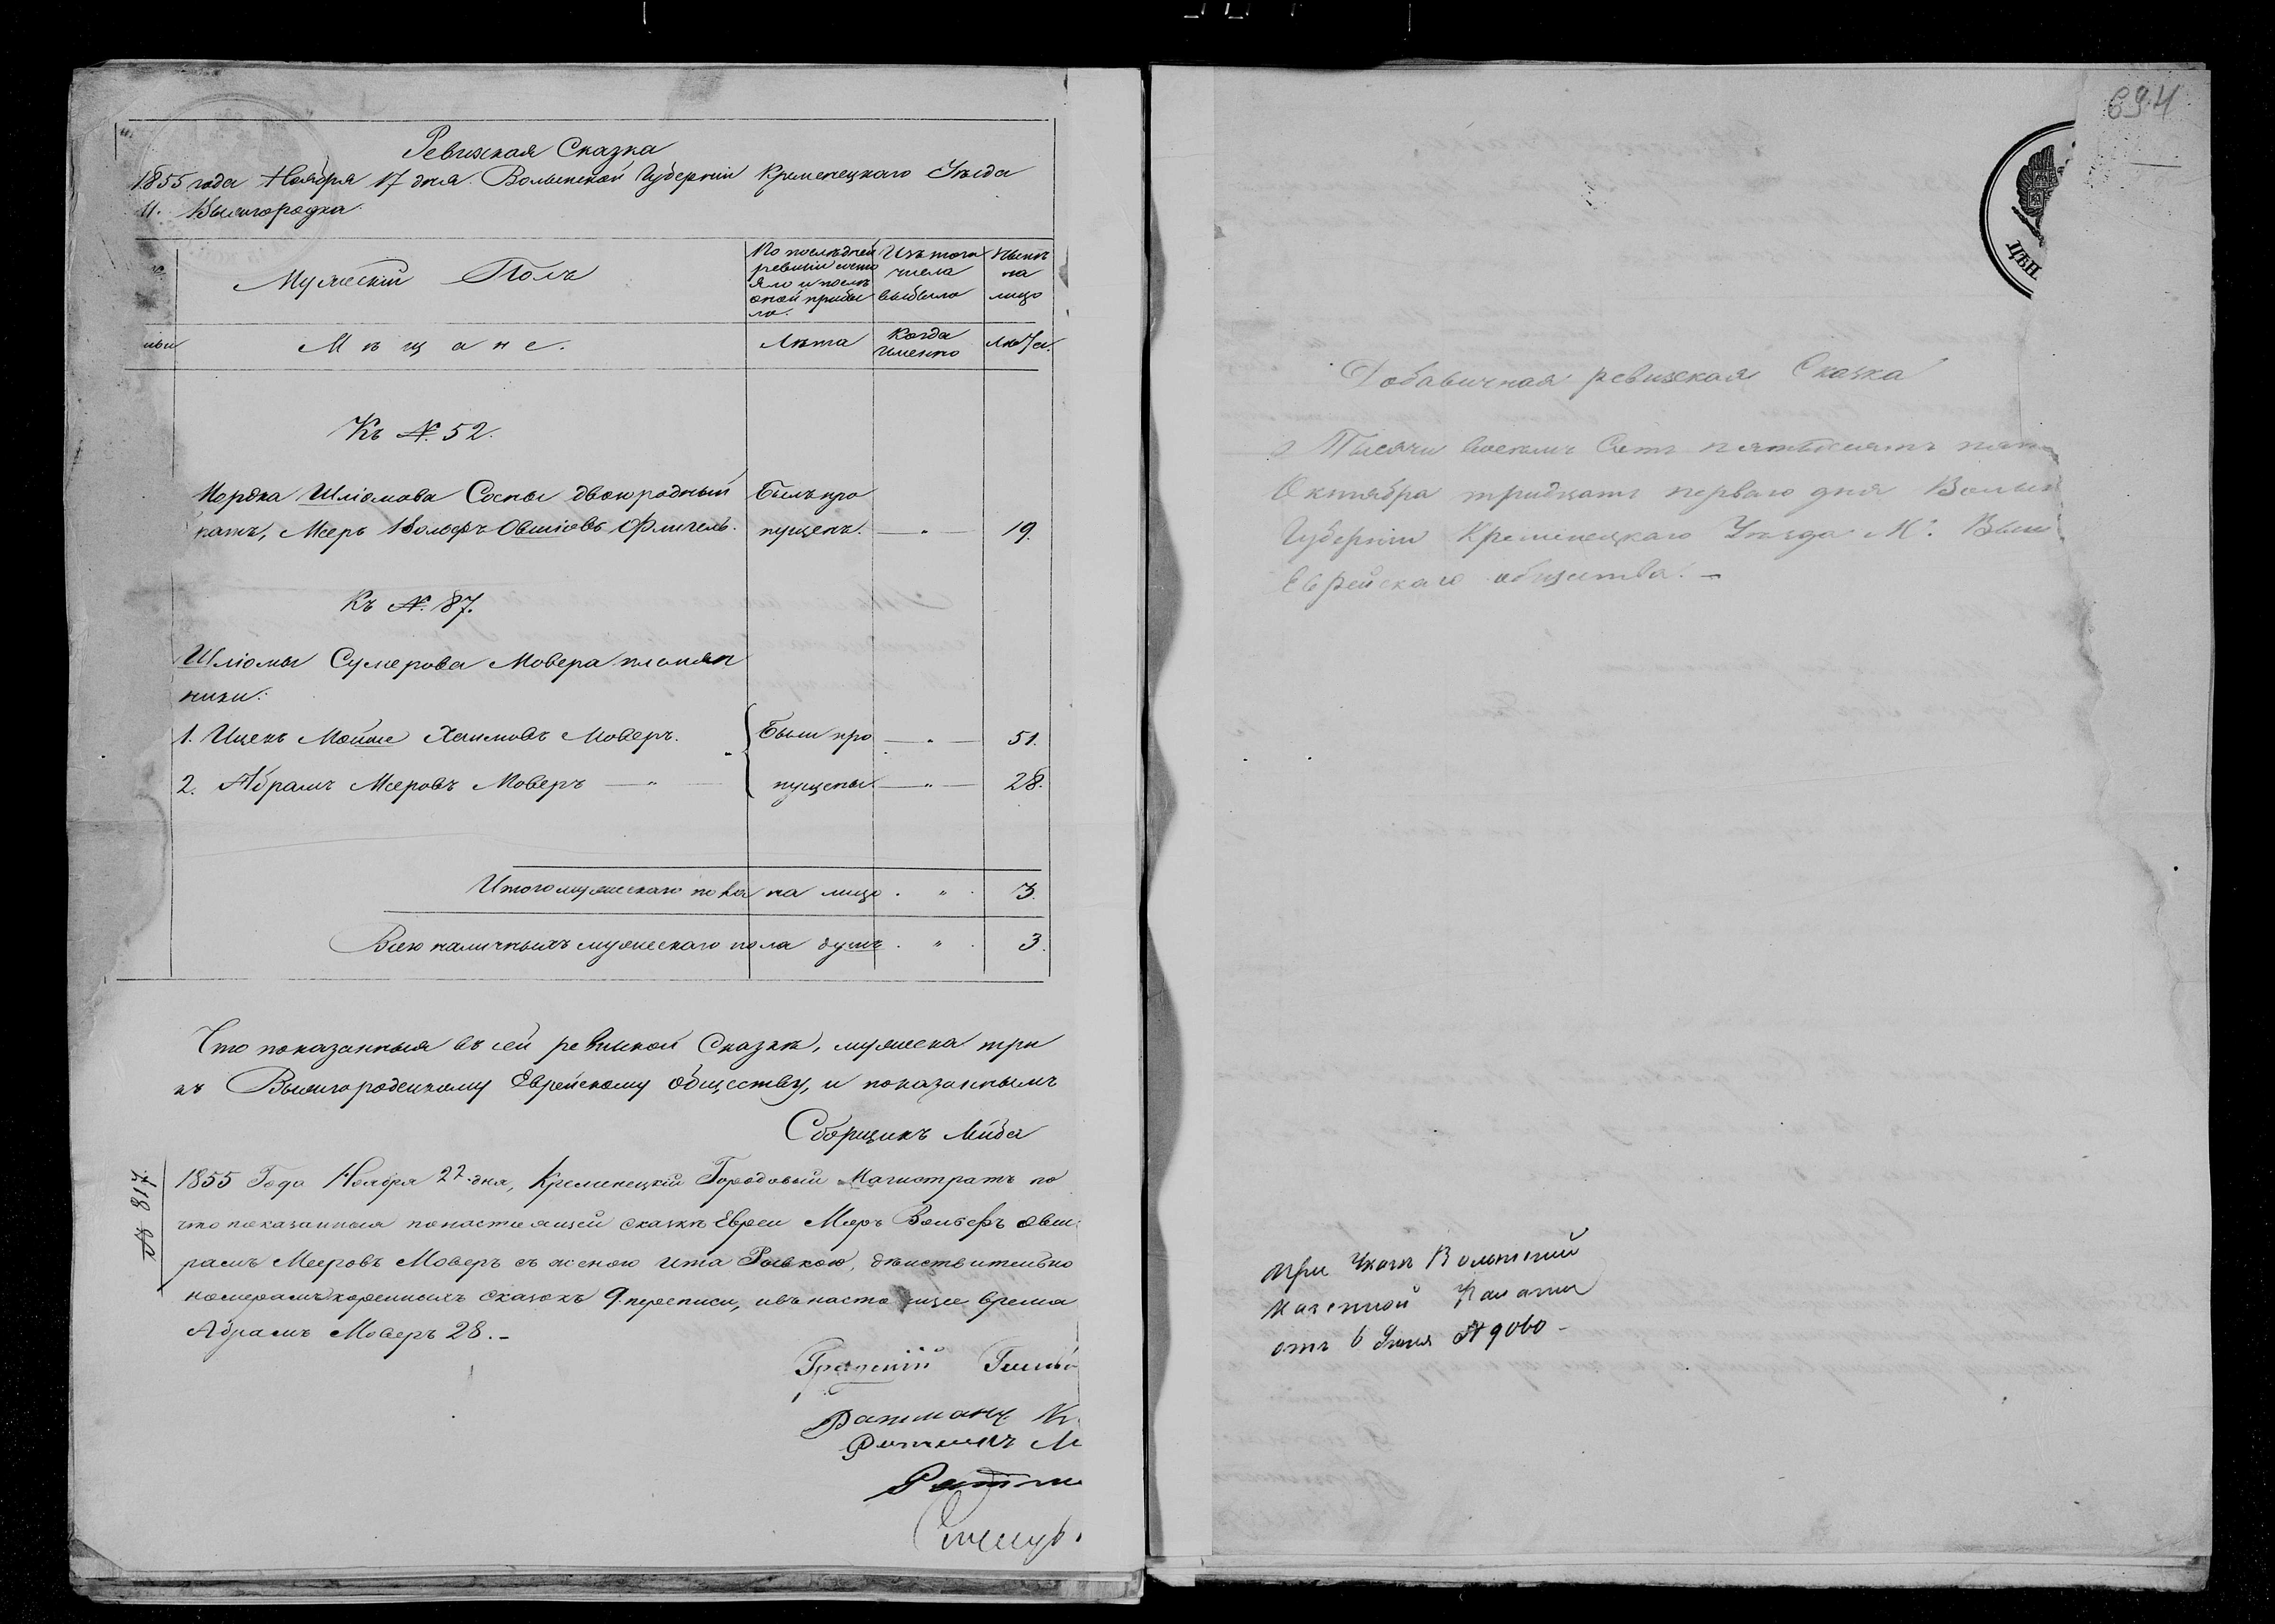 Ревизская Сказка
1855 года Ноября 17 дня. Волынской Губернiи Кременецкаго Уѣзда
М. Вышгородка.
Мужескiй Полъ
По послѣдней
ревизiи состо
яло и послѣ
оной прибы
ло.
Изъ того
числа
выбыло
Нынѣ
на
лицо
Мѣщане.
Лѣта
Когда
именно
Лѣта.
Къ № 52.
Мордка Шлiомова Сосны двоюродный
Былъ про
ратъ, Мееръ Вольфъ Овшiовъ Флигель.
пущенъ. — " — 19.
Къ № 87.
Шлiомы Сумерова Мовера племян
ники:
1. Ицекъ Мойше Хаимовъ Моверъ.
Были про — " — 51.
2. Абрамъ Мееровъ Моверъ — " —
пущены. — " — 28.
Итого мужескаго пола на лицо . " . 3.
Всего наличныхъ мужескаго пола душъ . " . 3.
Что показанныя въ сей ревизской Сказкѣ, мужеска три
къ Вышгородецкому Еврейскому обществу, и показаннымъ
Сборщикъ Лейба
1855 Года Ноября 27 дня, Кременецкiй Городовый Магистратъ по
что показанныя по настоящей сказкѣ Евреи Меръ Вольфъ Овш
рамъ Мееровъ Моверъ съ женою Ита Ривкою, дѣйствительно
номерамъ коренныхъ сказокъ 9 переписи, и въ настоящее время
Абрамъ Моверъ 28. –
Градскiй
Ратманъ
Ратманъ М
Ратм
№ 814
694
Добавичная ревизская Сказка
Тысячи восемь Сотъ пятьдесятъ пят
Октября тридцать перваго дня Волын
Губернiи Кременецкаго Уѣзда М: Выш
Еврейскаго общества. –
при Указѣ Волынской
Казенной Палаты
отъ 6 Iюня № 9060 –